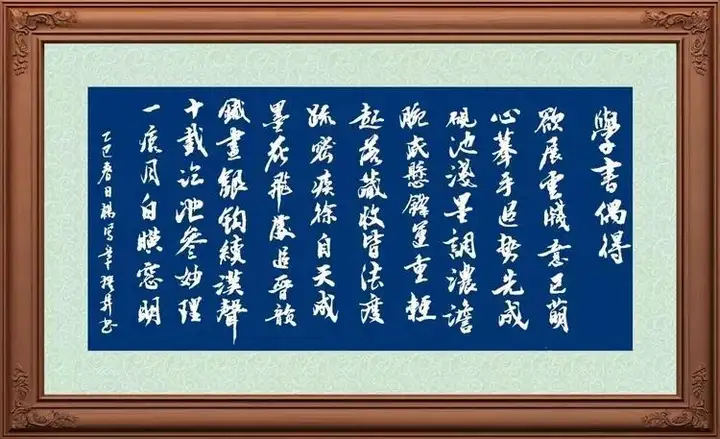 學書偶得
欲展雲牋意已萌
心摹手追勢先成
硯池淺墨調濃澹
腕底懸鋒運重輕
起落藏收皆法度
疏密疾徐自天成
墨花飛處追晉韻
鐵畫銀鉤續漢聲
十載臨池參妙理
一痕月白暎窓明
乙巳春日